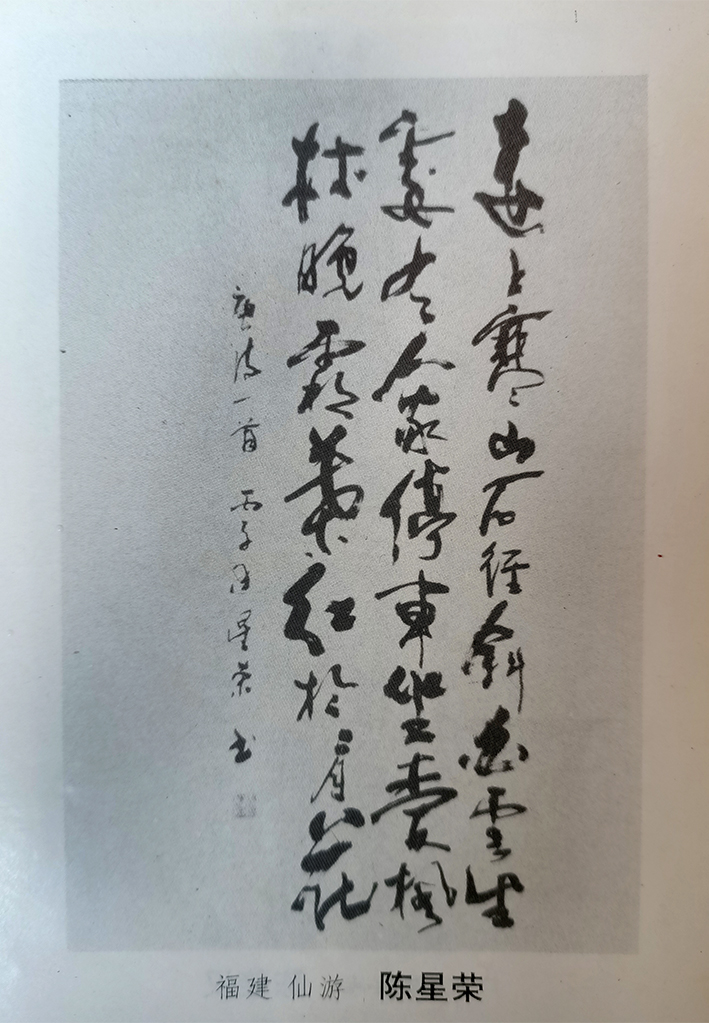 遠上寒山石徑斜白雲生
處有人家停車坐愛楓
林晚霜葉紅於二月花
唐詩一首 丙子年星荣书
福建 仙游 陈星荣